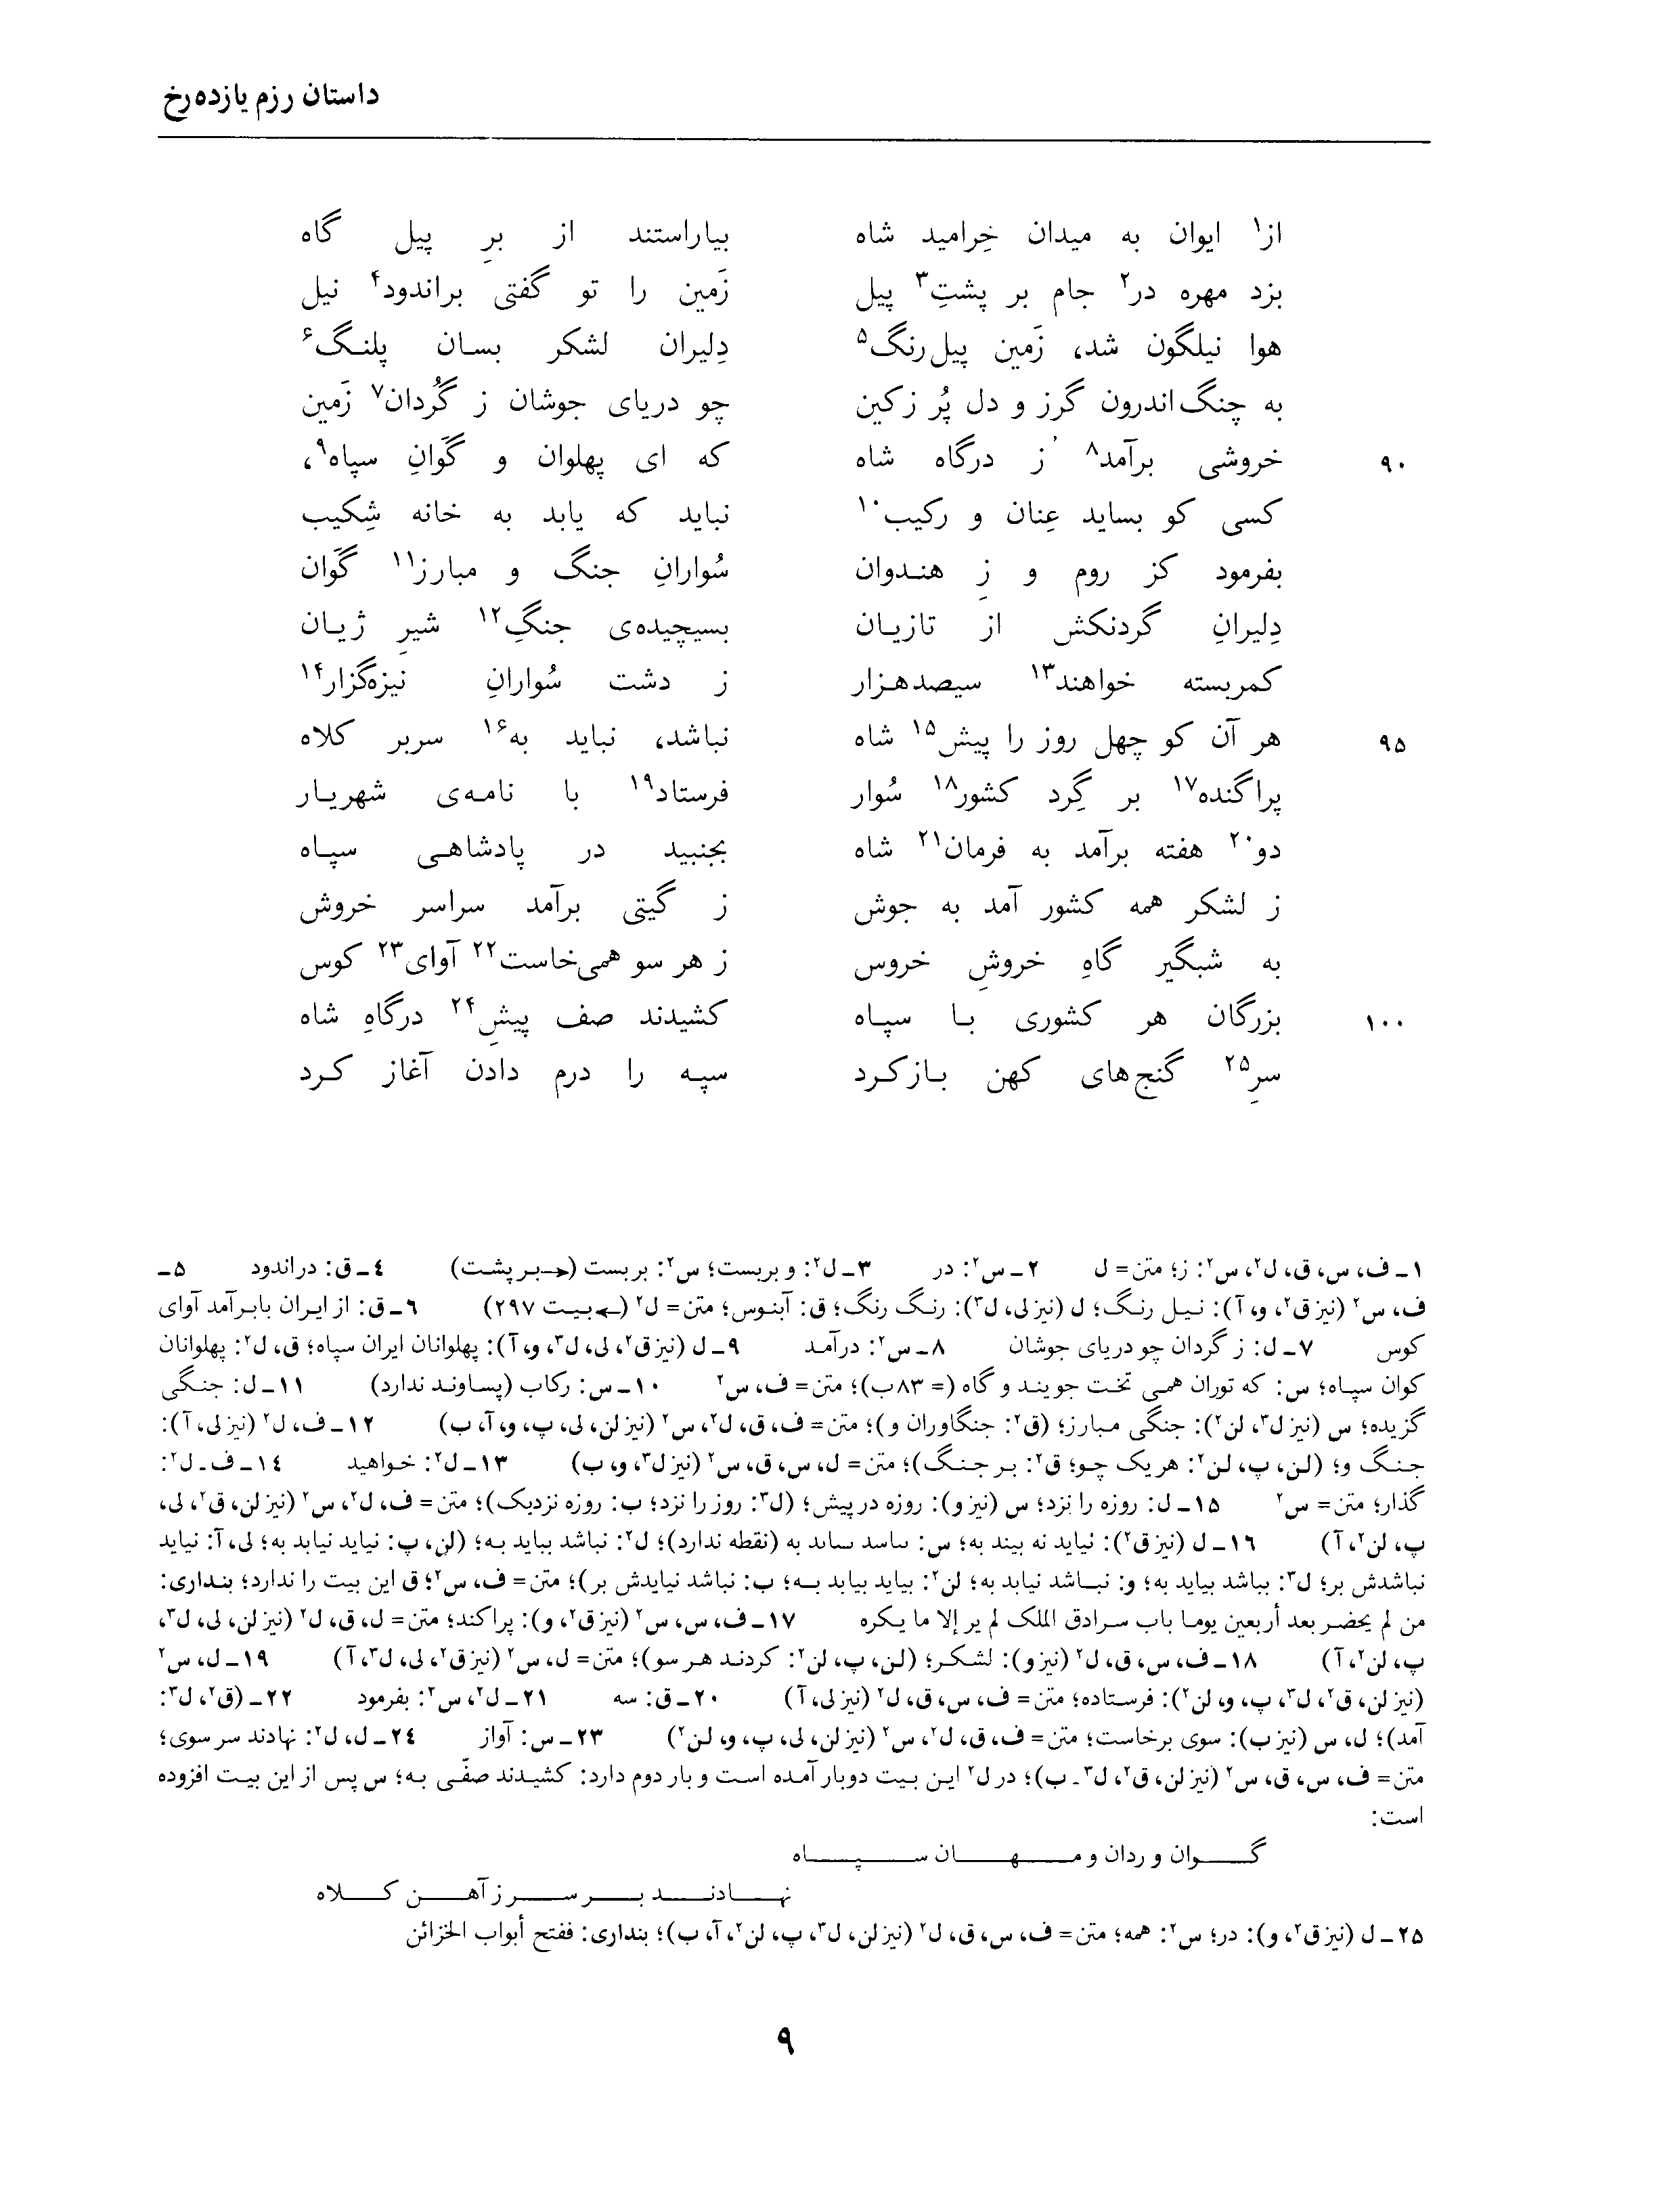 داستان رزم یازده‌رخ
از¹ ایوان به میدان خِرامید شاه بیاراستند از برِ پیل گاه
بزد مهره در² جام بر پشتِ³ پیل زَمین را تو گفتی براندود⁴ نیل
هوا نیلگون شد، زَمین پیل‌رنگ⁵ دِلیران لشکر بسان پلنگ⁶
به چنگ‌اندرون گرز و دل پُر زکین چو دریای جوشان ز گُردان⁷ زَمین
۹۰ خروشی برآمد⁸ ز درگاه شاه که ای پهلوان و گَوانِ سپاه⁹،
کسی کو بساید عِنان و رکیب¹⁰ نباید که یابد به خانه شِکیب
بفرمود کز روم و زِ هندوان سُوارانِ جنگ و مبارز¹¹ گَوان
دِلیرانِ گردنکش از تازیان بسیچیده‌ی جنگِ¹² شیرِ ژیان
کمربسته خواهند¹³ سیصدهزار ز دشت سُوارانِ نیزه‌گزار¹⁴
۹۵ هر آن کو چهل روز را پیش¹⁵ شاه نباشد، نباید به¹⁶ سربر کلاه
پراگنده¹⁷ بر گِرد کشور¹⁸ سُوار فرستاد¹⁹ با نامه‌ی شهریار
دو²⁰ هفته برآمد به فرمان²¹ شاه بجنبید در پادشاهی سپاه
ز لشکر همه کشور آمد به جوش ز گیتی برآمد سراسر خروش
به شبگیر گاهِ خروشِ خروس ز هر سو همی‌خاست²² آوای²³ کوس
۱۰۰ بزرگان هر کشوری با سپاه کشیدند صف پیشِ²⁴ درگاهِ شاه
سرِ²⁵ گنج‌های کهن بازکرد سپه را درم دادن آغاز کرد
۱ـ ف، س، ق، ل²، س²: ز؛ متن= ل ۲ـ س²: در ۳ـ ل²: و بربست؛ س²: بربست (←برپشت) ٤ـ ق: دراندود ۵ـ
ف، س² (نیز ق²، و، آ): نیل رنگ؛ ل (نیز لی، ل³): رنگ رنگ؛ ق: آبنوس؛ متن= ل² (←بیت ۲۹۷) ٦ـ ق: از ایران بابرآمد آوای
کوس ۷ـ ل: ز گردان چو دریای جوشان ۸ـ س²: درآمد ۹ـ ل (نیز ق²، لی، ل³، و، آ): پهلوانان ایران سپاه؛ ق، ل²: پهلوانان
کوان سپاه؛ س: که توران همی تخت جویند و گاه (= ۸۳ب)؛ متن= ف، س² ۱۰ـ س: رکاب (پساوند ندارد) ۱۱ـ ل: جنگی
گزیده؛ س (نیز ل³، لن²): جنگی مبارز؛ (ق²: جنگاوران و)؛ متن= ف، ق، ل²، س² (نیز لن، لی، پ، و، آ، ب) ۱۲ـ ف، ل² (نیز لی، آ):
جنگ و؛ (لن، پ، لن²: هر یک چو؛ ق²: بر جنگ)؛ متن= ل، س، ق، س² (نیز ل³، و، ب) ۱۳ـ ل²: خواهید ۱٤ـ ف ـ ل²:
گذار؛ متن= س² ۱۵ـ ل: روزه را نزد؛ س (نیز و): روزه در پیش؛ (ل³: روز را نزد؛ ب: روزه نزدیک)؛ متن= ف، ل²، س² (نیز لن، ق²، لی،
پ، لن²، آ) ۱٦ـ ل (نیز ق²): نیاید نه بیند به؛ س: به (نقطه ندارد)؛ ل²: نباشد بباید به؛ (لن، پ: نیاید نیابد به؛ لی، آ: نیاید
نباشدش بر؛ ل³: بباشد بیاید به؛ و: نباشد نیابد به؛ لن²: بیاید بیابد به؛ ب: نباشد نیایدش بر)؛ متن= ف، س²؛ ق این بیت را ندارد؛ بنداری:
من لم یحضر بعد أربعین یوما باب سرادق الملک لم یر إلا ما یکره ۱۷ـ ف، س، س² (نیز ق²، و): پراکند؛ متن= ل، ق، ل² (نیز لن، لی، ل³،
پ، لن²، آ) ۱۸ـ ف، س، ق، ل² (نیز و): لشکر؛ (لن، پ، لن²: کردند هر سو)؛ متن= ل، س² (نیز ق²، لی، ل³، آ) ۱۹ـ ل، س²
(نیز لن، ق²، ل³، پ، و، لن²): فرستاده؛ متن= ف، س، ق، ل² (نیز لی، آ) ۲۰ـ ق: سه ۲۱ـ ل²، س²: بفرمود ۲۲ـ (ق²، ل³:
آمد)؛ ل، س (نیز ب): سوی برخاست؛ متن= ف، ق، ل²، س² (نیز لن، لی، پ، و، لن²) ۲۳ـ س: آواز ۲٤ـ ل، ل²: نهادند سر سوی؛
متن= ف، س، ق، س² (نیز لن، ق²، ل³ ـ ب)؛ در ل² این بیت دوبار آمده است و بار دوم دارد: کشیدند صفّی به؛ س پس از این بیت افزوده
است:
گوان و ردان و مهان سپاه
نهادند بر سر ز آهن کلاه
۲۵ـ ل (نیز ق²، و): در؛ س²: همه؛ متن= ف، س، ق، ل² (نیز لن، ل³، پ، لن²، آ، ب)؛ بنداری: ففتح أبواب الخزائن
۹